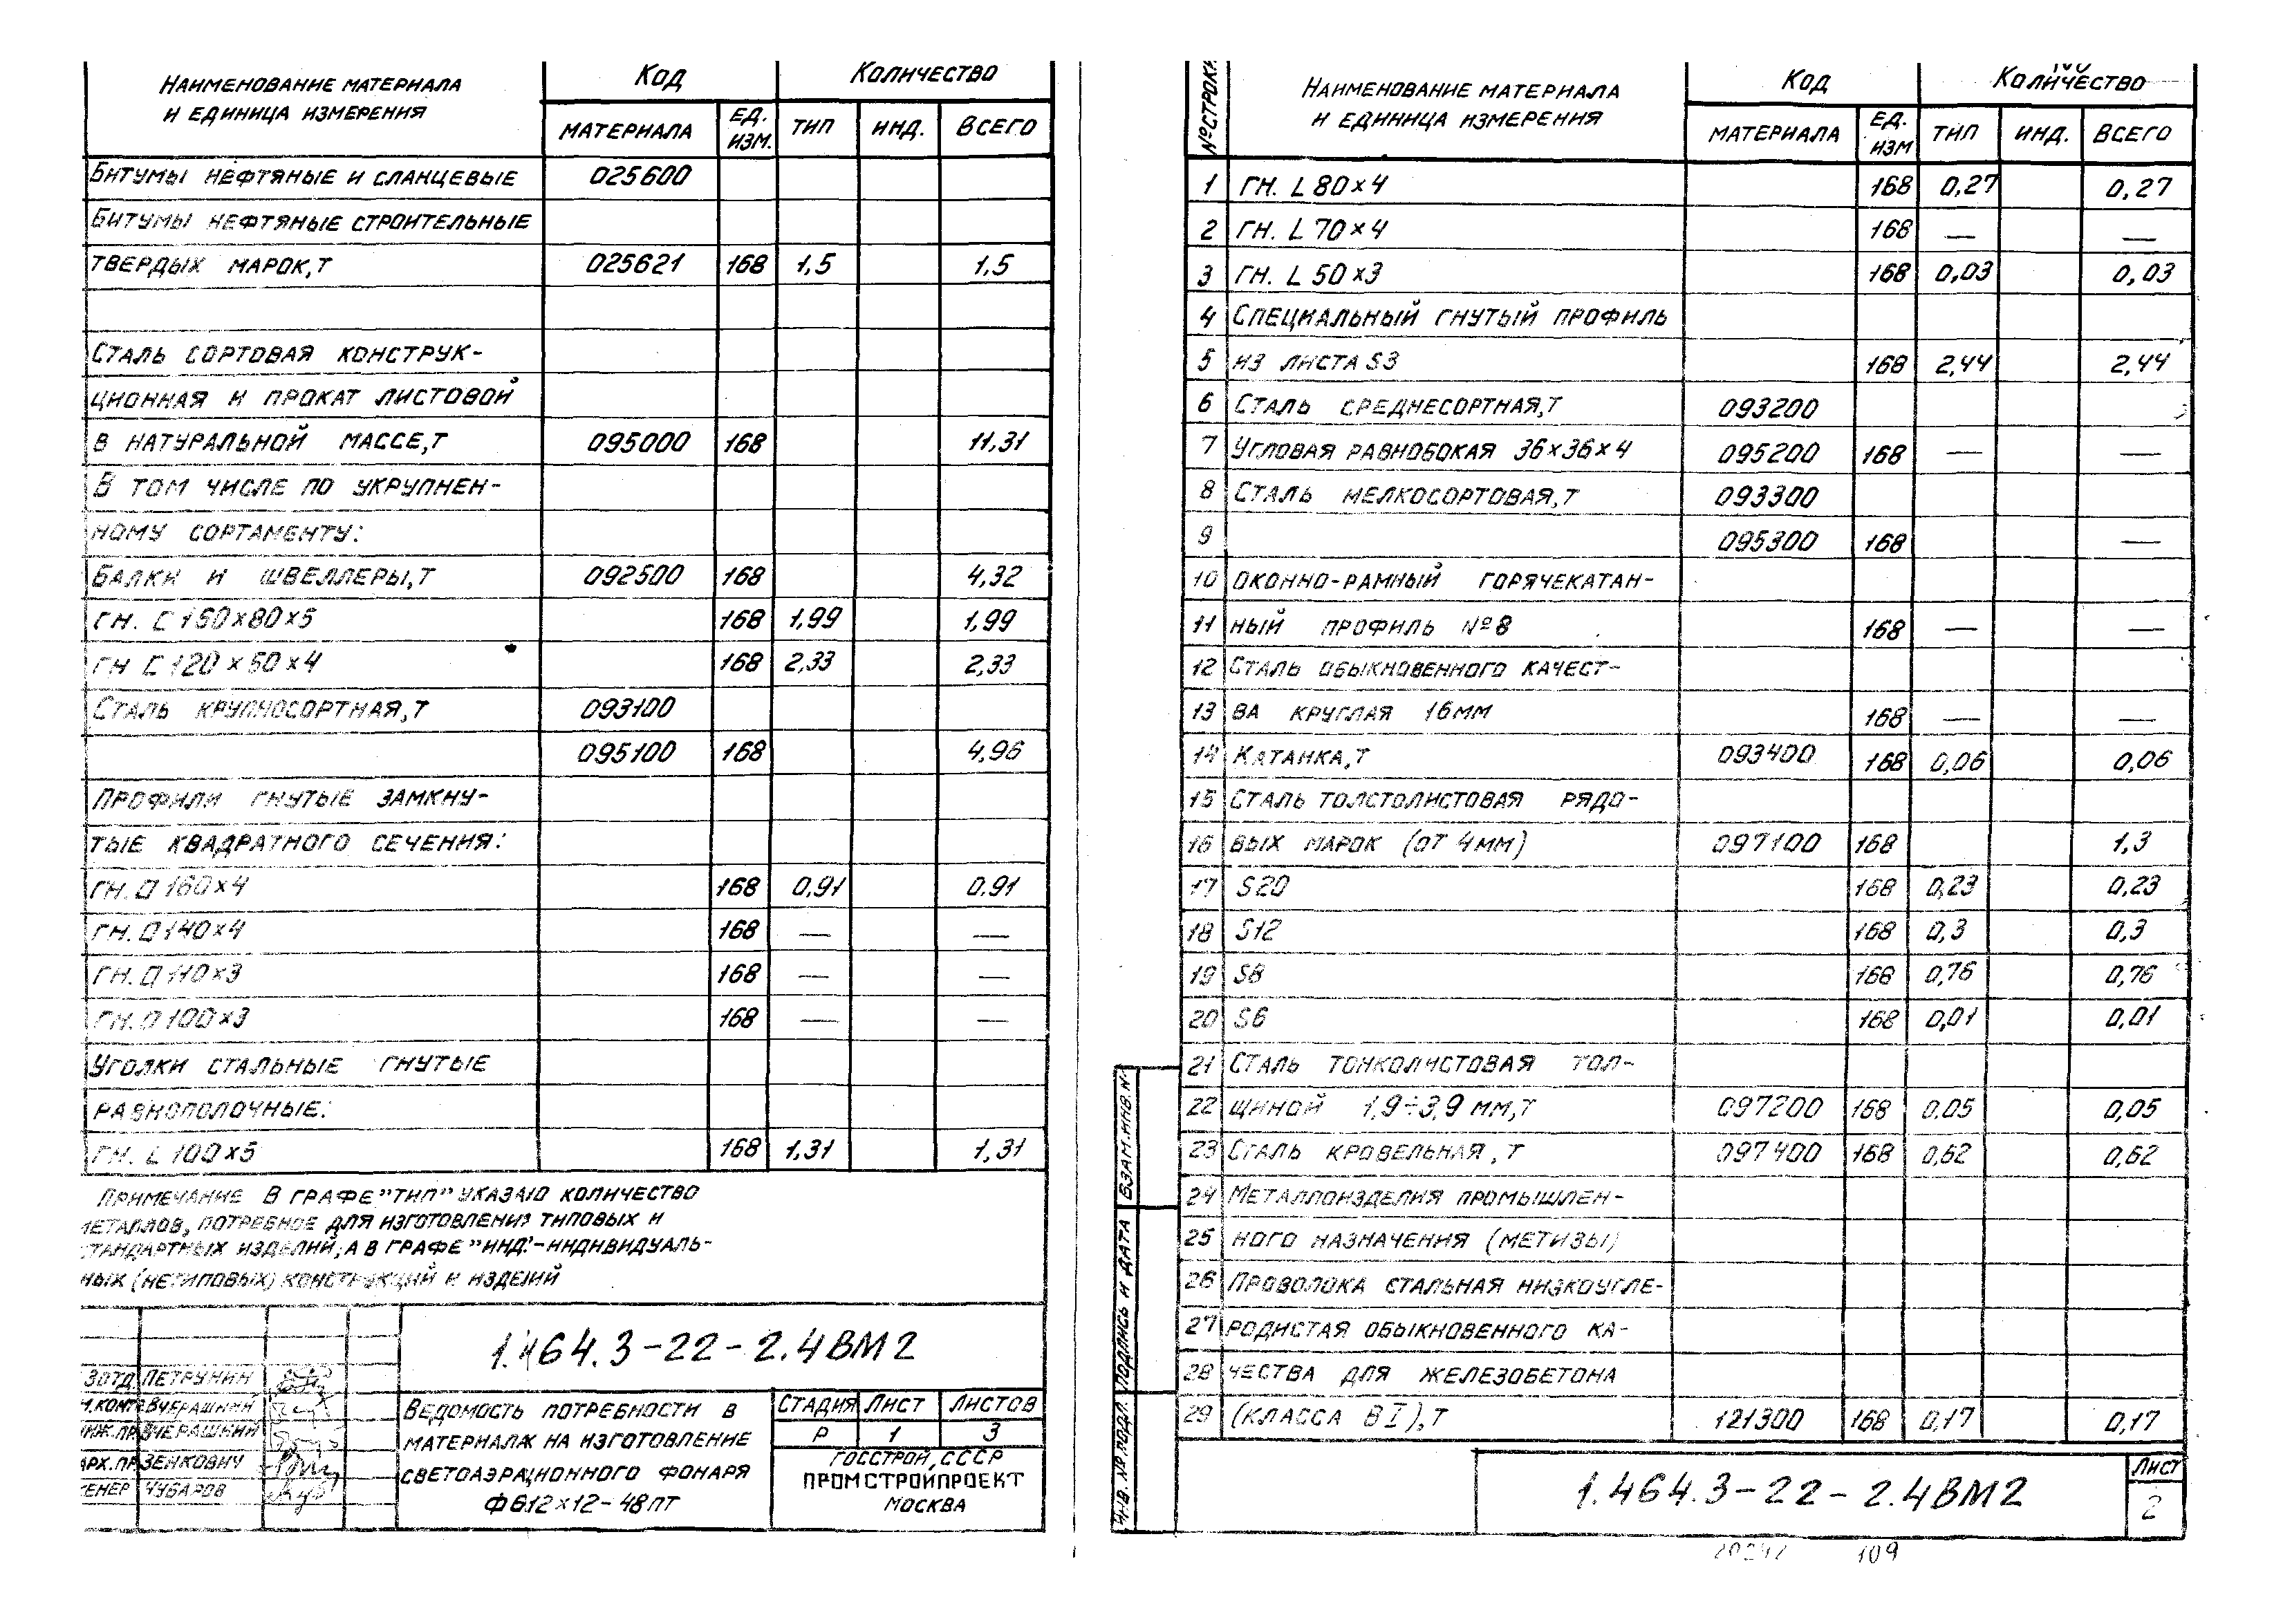 Наименование материала и единица измерения | Код | Количество
материала | ед. изм. | тип | инд. | всего
Битумы нефтяные и сланцевые 025600
Битумы нефтяные строительные
твердых марок, т 025621 168 1,5 1,5
Сталь сортовая конструк-
ционная и прокат листовой
в натуральной массе, т 095000 168 11,31
В том числе по укрупнен-
ному сортаменту:
Балки и швеллеры, т 092500 168 4,32
гн. С 160×80×5 168 1,99 1,99
гн С 120×50×4 168 2,33 2,33
Сталь крупносортная, т 093100
095100 168 4,96
Профили гнутые замкну-
тые квадратного сечения:
гн. □ 160×4 168 0,91 0,91
гн. □ 140×4 168 — —
гн. □ 110×3 168 — —
гн. □ 100×3 168 — —
Уголки стальные гнутые
равнополочные:
гн. L 100×5 168 1,31 1,31
Примечание В графе "тип" указано количество
металлов, потребное для изготовления типовых и
стандартных изделий, а в графе "инд."-индивидуаль-
ных (нетиповых) конструкций и изделий
1.464.3-22-2.4ВМ2
Петрунин
Вчерашний
Вчерашний
Зенкович
Чубаров
Ведомость потребности в
материалах на изготовление
светоаэрационного фонаря
Ф612×12-48пт
Стадия Лист Листов
Р 1 3
Госстрой СССР
Промстройпроект
Москва
№ строки | Наименование материала и единица измерения | Код | Количество
материала | ед. изм | тип | инд. | всего
1 гн. L 80×4 168 0,27 0,27
2 гн. L 70×4 168 — —
3 гн. L 50×3 168 0,03 0,03
4 Специальный гнутый профиль
5 из листа S3 168 2,44 2,44
6 Сталь среднесортная, т 093200
7 Угловая равнобокая 36×36×4 095200 168 — —
8 Сталь мелкосортовая, т 093300
9 095300 168 —
10 оконно-рамный горячекатан-
11 ный профиль №8 168 — —
12 Сталь обыкновенного качест-
13 ва круглая 16мм 168 — —
14 Катанка, т 093400 168 0,06 0,06
15 Сталь толстолистовая рядо-
16 вых марок (от 4мм) 097100 168 1,3
17 S20 168 0,23 0,23
18 S12 168 0,3 0,3
19 S8 168 0,76 0,76
20 S6 168 0,01 0,01
21 Сталь тонколистовая тол-
22 щиной 1,9÷3,9 мм, т 097200 168 0,05 0,05
23 Сталь кровельная, т 097400 168 0,62 0,62
24 Металлоизделия промышлен-
25 ного назначения (метизы)
26 Проволока стальная низкоугле-
27 родистая обыкновенного ка-
28 чества для железобетона
29 (класса ВI), т 121300 168 0,17 0,17
Инв. № подл. Подпись и дата Взам. инв. №
1.464.3-22-2.4ВМ2
Лист
2
109